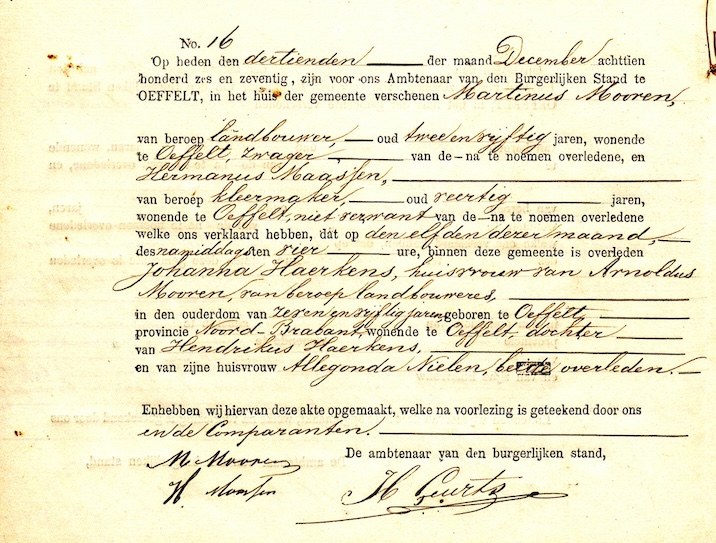 No. 16
Op heden den dertienden der maand December achttien
honderd zes en zeventig, zijn voor ons Ambtenaar van den Burgerlijken Stand te
OEFFELT, in het huis der gemeente verschenen Martinus Mooren,
van beroep landbouwer, oud twee en vijftig jaren, wonende
te Oeffelt, zwager van de na te noemen overledene, en
Hermanus Maassen,
van beroep kleermaker, oud veertig jaren,
wonende te Oeffelt, niet verwant van de na te noemen overledene
welke ons verklaard hebben, dat op den elfden dezer maand,
des namiddags ten vier ure, binnen deze gemeente is overleden
Johanna Haerkens, huisvrouw van Arnoldus
Mooren, van beroep landbouweres,
in den ouderdom van zeven en vijftig jaren, geboren te Oeffelt,
provincie Noord-Brabant, wonende te Oeffelt, dochter
van Hendrikus Haerkens,
en van zijne huisvrouw Allegonda Nielen, beide overleden.
En hebben wij hiervan deze akte opgemaakt, welke na voorlezing is geteekend door ons
en de Comparanten.
De ambtenaar van den burgerlijken stand,
M Mooren
H. Maassen
H Geurts